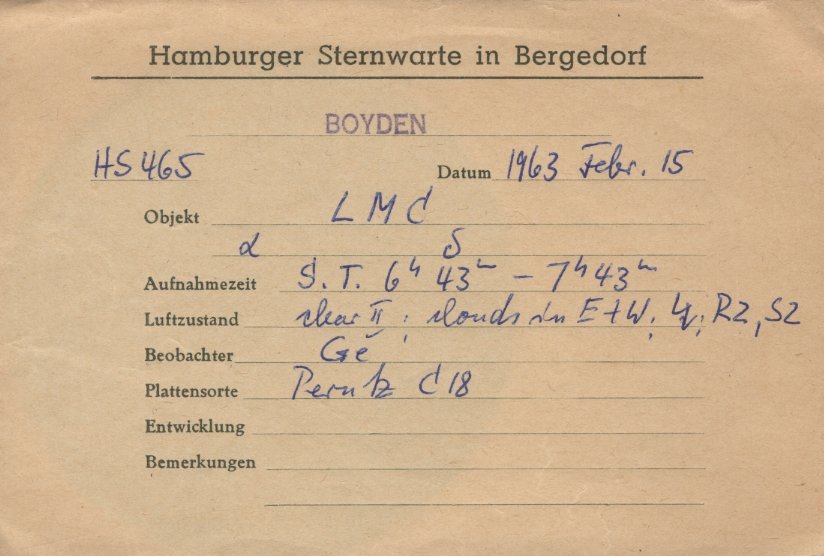 Hamburger Sternwarte in Bergedorf
BOYDEN
HS 465 Datum 1963 Febr. 15
Objekt LMC
α δ
Aufnahmezeit S.T. 6ʰ 43ᵐ – 7ʰ 43ᵐ
Luftzustand clear II; clouds in E+W; R2, S2
Beobachter Gé
Plattensorte Perutz C 18
Entwicklung
Bemerkungen